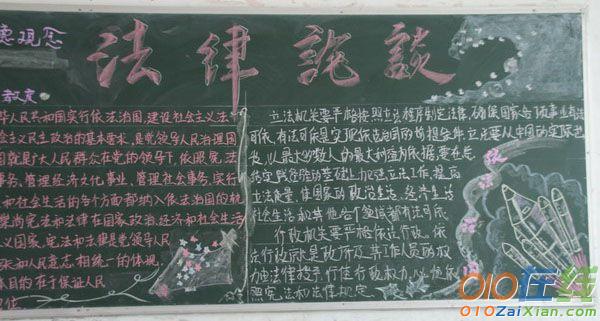 法律说谈
德观念
教育
华人民共和国实行依法治国,建设社会主义法
会主义民主政治的基本要求,是党领导人民治理国
国就是广大人民群众在党的领导下,依照宪法
事务,管理经济文化事业,管理社会事务,实行
和社会生活的各个方面都纳入依法治国的轨
崇尚宪法和法律在国家政治,经济和社会生活
义国家,宪法和法律是党领导人民
和人民意志相统一的体现,
本目的在于保证人民
地位
立法机关要严格按照立法程序制定法律,确保国家各项事业有法
可依,有法可依是实现依法治国的前提条件,立法要从中国的实际出
发,以最大多数人的最大利益为依据,要在总
结实践经验的基础上加强立法工作,提高
立法质量,使国家的政治生活、经济生活
社会生活和其他各个领域都有法可依
行政机关要严格依法行政。依
法行政就是政府及其工作人员的权
力由法律授予,行使行政权力,必须依
照宪法和法律规定。
010在线
010ZaiXian.com